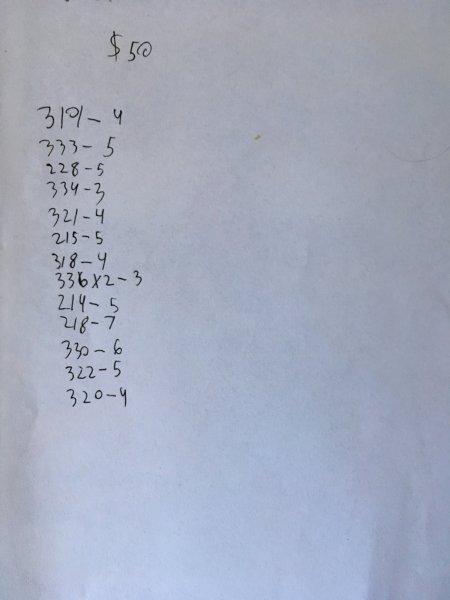 $50
319 - 4
333 - 5
228 - 5
334 - 3
321 - 4
215 - 5
318 - 4
336 x 2 - 3
214 - 5
218 - 7
330 - 6
322 - 5
320 - 4